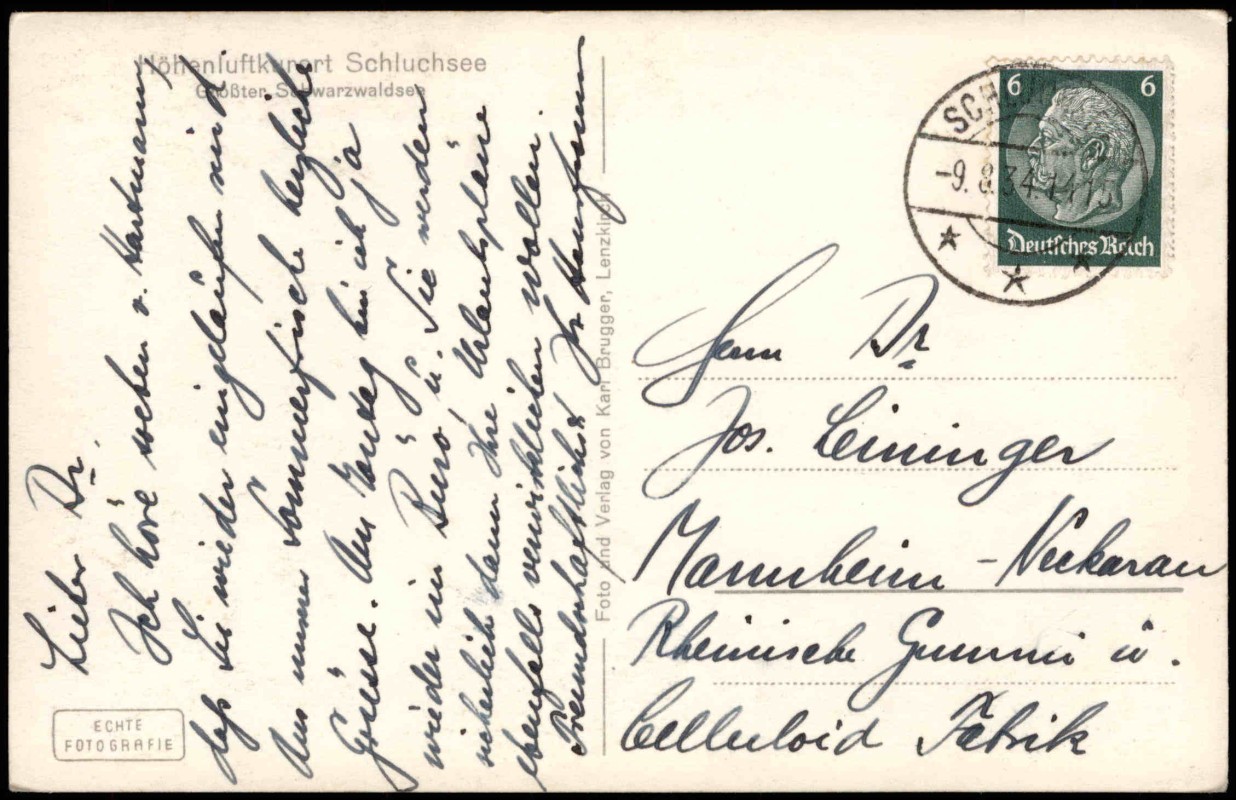 Höhenluftkurort Schluchsee
Größter Schwarzwaldsee
Lieber Dr.
Ich höre soeben v. Hartmann
daß Sie wieder eingelaufen sind
Aus unserer Sommerfrische herzliche
Grüsse. Am Montag bin ich ja
wieder im Büro u. Sie werden
sicherlich dann Ihre Urlaubspläne
ebenfalls verwirklichen wollen.
Freundschaftlichst
Ihr
ECHTE
FOTOGRAFIE
Foto und Verlag von Karl Brugger, Lenzkirch
6 6
Deutsches Reich
-9.8.34.
Herrn Dr
Jos. Leininger
Mannheim - Neckarau
Rheinische Gummi u.
Celluloid Fabrik